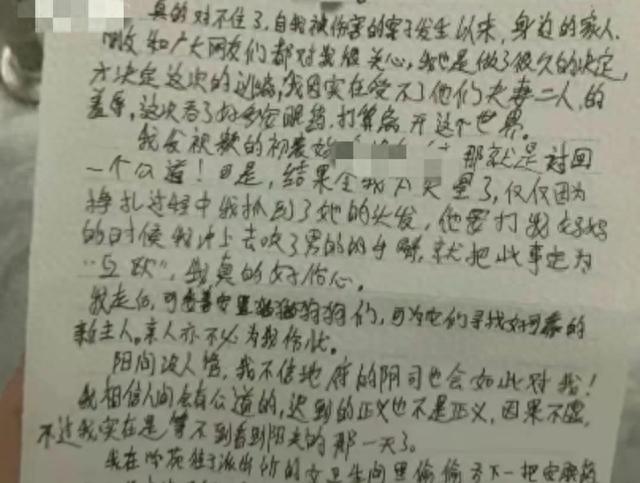 真的对不住了,自我被伤害的案子发生以来,身边的家人
朋友和广大网友们都对我很关心,我也是做了很久的决定,
才决定这次的训练,我因实在受不了他们夫妻二人的
羞辱,这次吞了好多安眠药,打算离开这个世界。
我发视频的初衷 那就是讨回
一个公道!可是,结果全 了,仅仅因为
挣扎过程中我抓到了她的头发,他要打我妈妈
的时候我冲上去咬了男的的手臂,就把此事定为
“互殴”,我真的好伤心。
我走后,可 安置猫猫狗狗们,可为它们寻找好可靠的
新主人。亲人亦不必为我伤心。
阳间没人管,我不信地府的阴司也会如此对我!
我相信人间会有公道的,迟到的正义也不是正义,因果不虚,
不过我实在是等不到看到阳光的那一天了。
我在 派出所的女卫生间里偷偷吞下一把安眠药